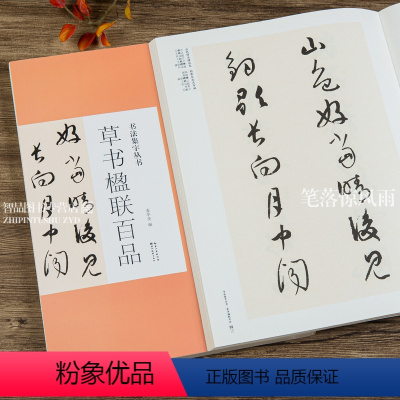 书法集字丛书
草书楹联百品
好當晴後見
長向月中聞
山色好當晴後見
釣歌長向月中聞
ZHIPINTUSHU ZYD
笔落惊风雨
粉象优品
正版图书 品质保证